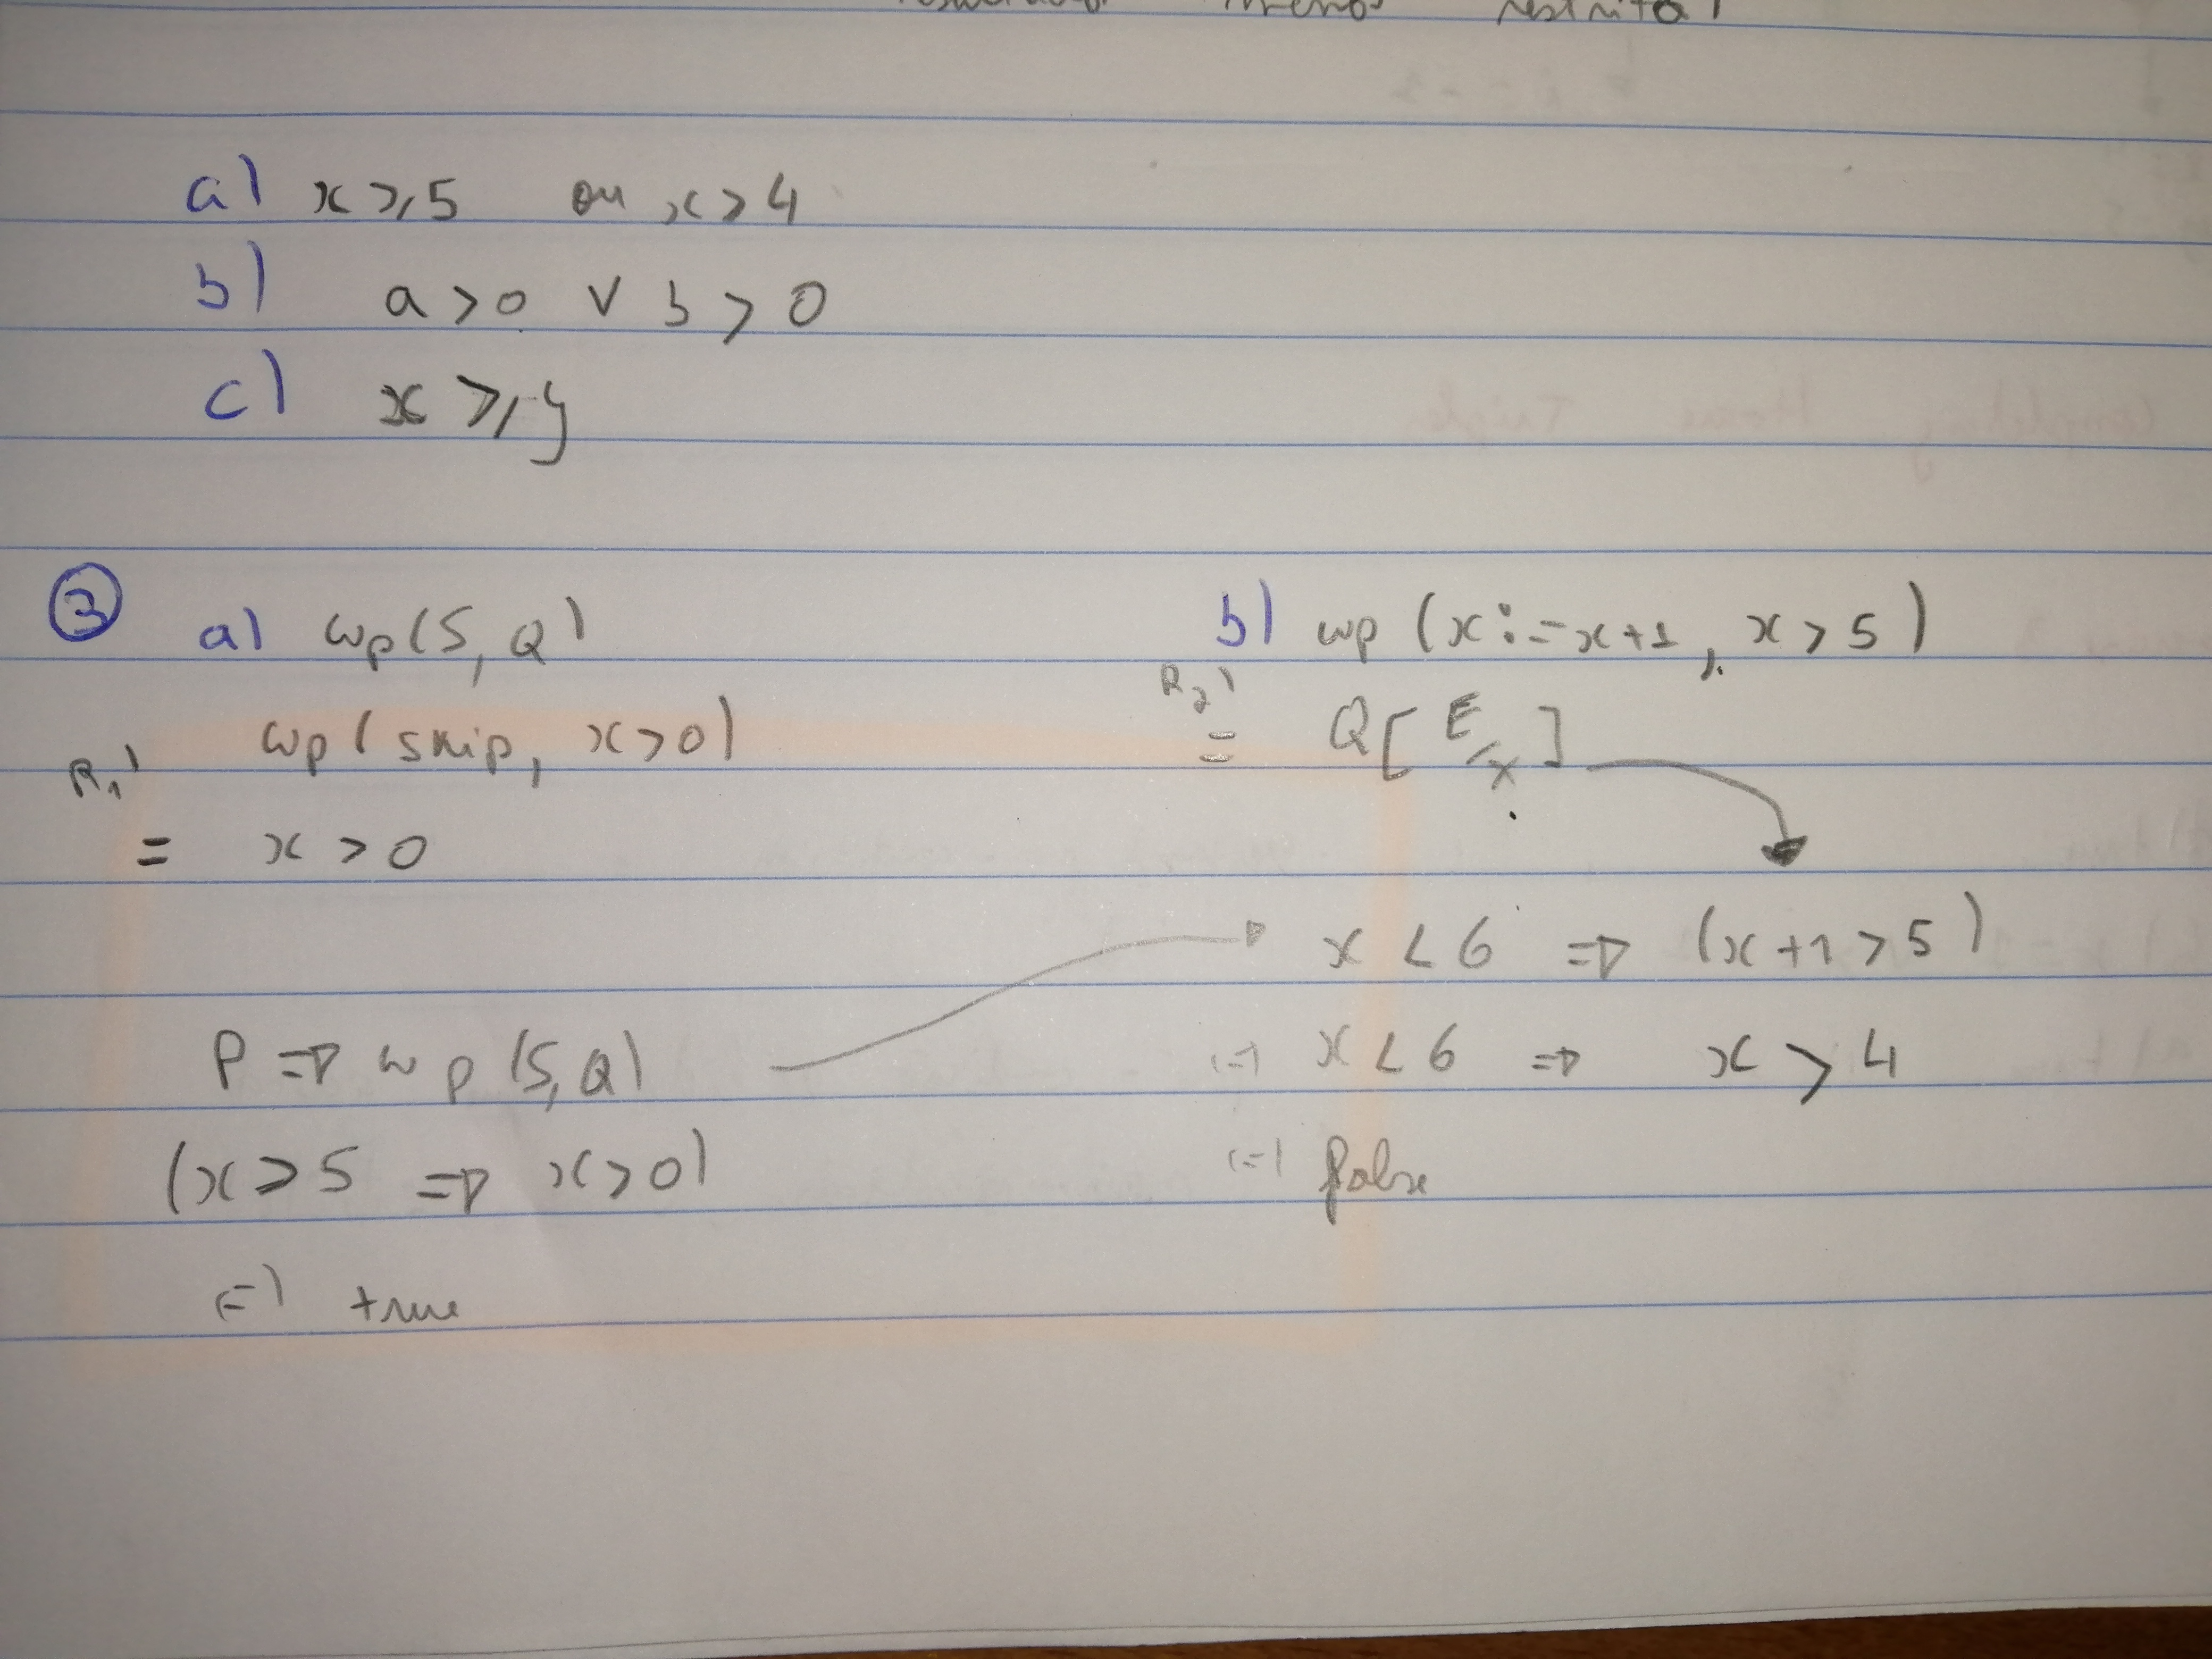 restrita
a) x ⩾ 5 ou x > 4
b) a > 0 ∨ b > 0
c) x ⩾ y
③ a) wp(S, Q)
wp(skip, x > 0)
R1'
= x > 0
P => wp(S, Q)
(x ⩾ 5 => x > 0)
(=) true
b) wp(x := x+1, x > 5)
R2'
= Q[E/x]
x < 6 => (x+1 > 5)
(=) x < 6 => x > 4
(=) false